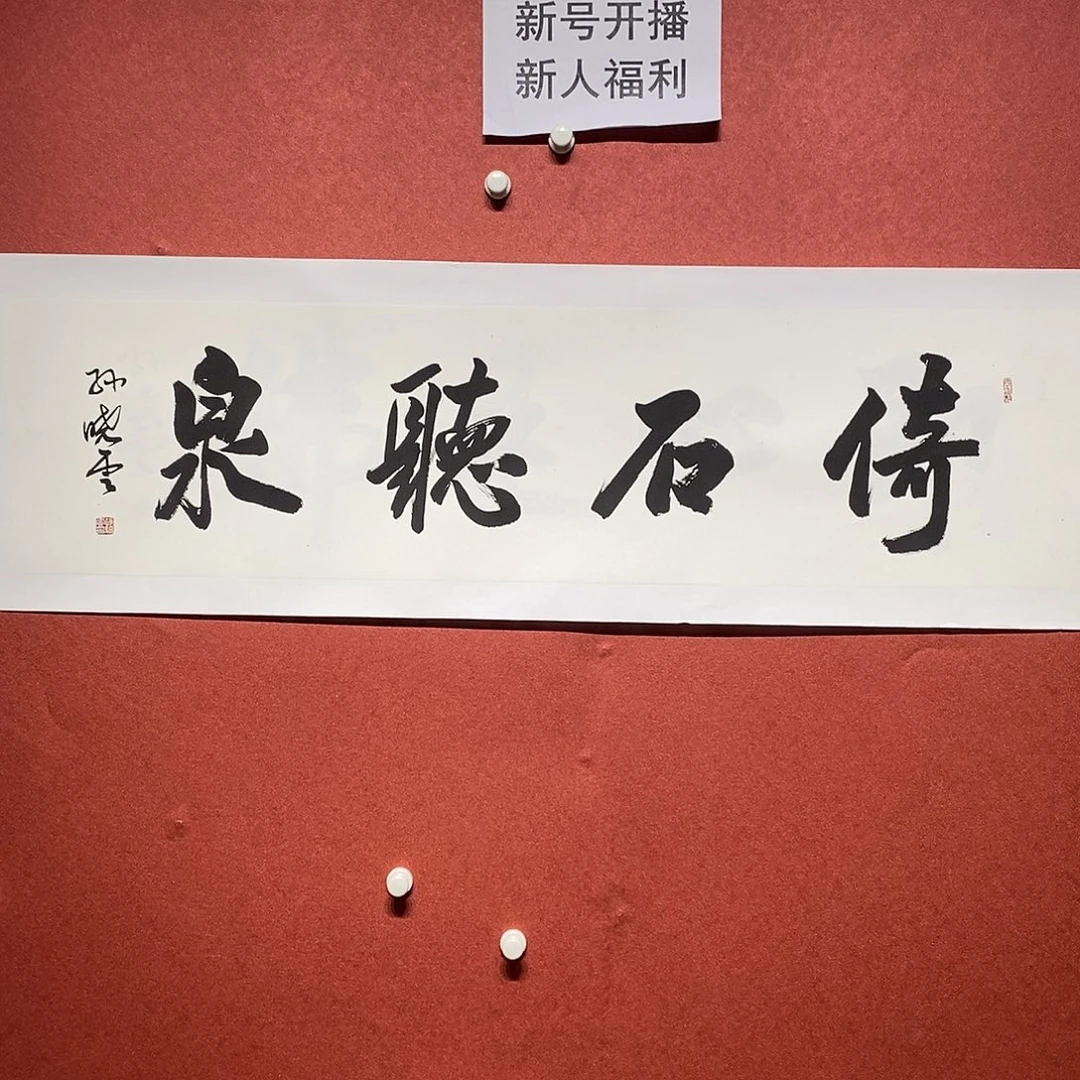 新号开播
新人福利
倚石聽泉
孙晓云